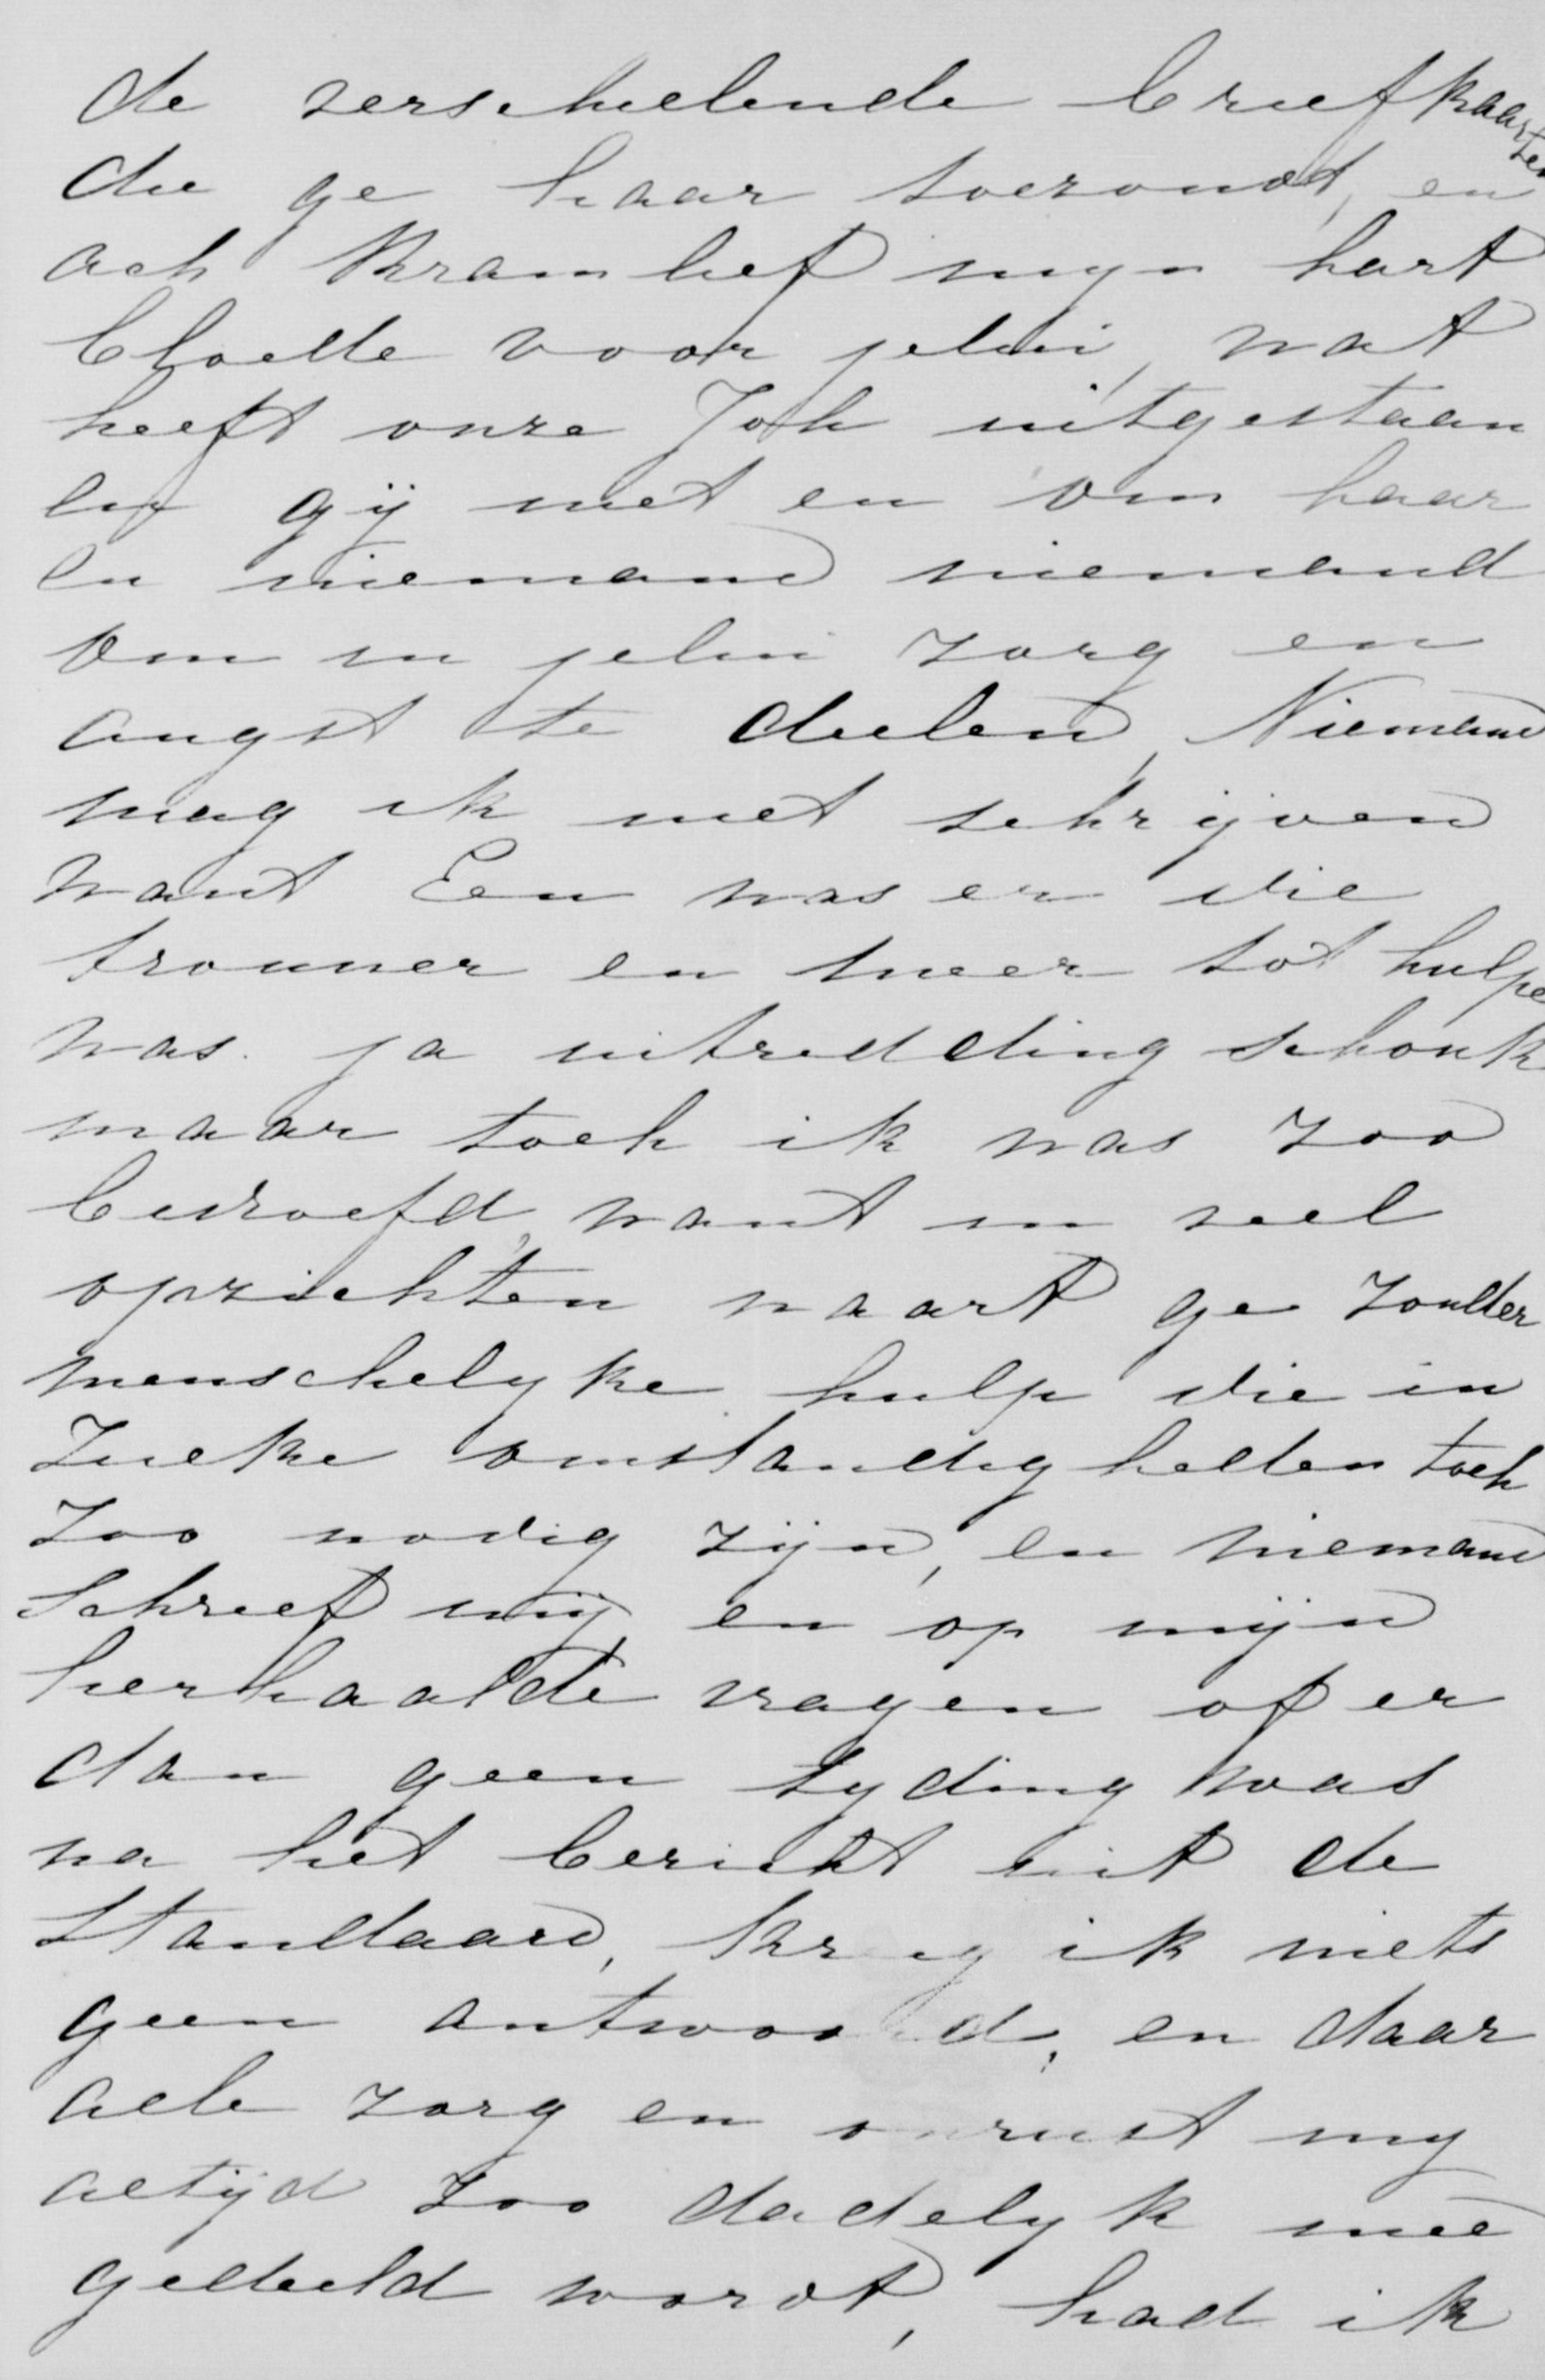 de verschillende briefkaarten
die ge haar toezondt, en
ach Kram lief mijn hart
bloedde voor jelui, wat
heeft onze Joh uitgestaan
en gij met en om haar
en niemand niemand
om in jelui zorg en
angst te deelen, Niemand
mag ik niet schrijven
want Een was er die
trouwer en meer tot hulpe
was. ja uitredding schonk
maar toch ik was zoo
bedroefd, want in veel
opzichten waart ge zonder
menschelyke hulp die in
zulke omstandigheden toch
zoo nodig zijn, en niemand
schreef mij en op mijn
herhaalde vragen of er
dan geen tyding was
na het bericht uit de
Standaard, kreeg ik niets
geen antwoord, en daar
alle zorg en onrust my
altijd zoo dadelyk mee
gedeeld wordt, had ik